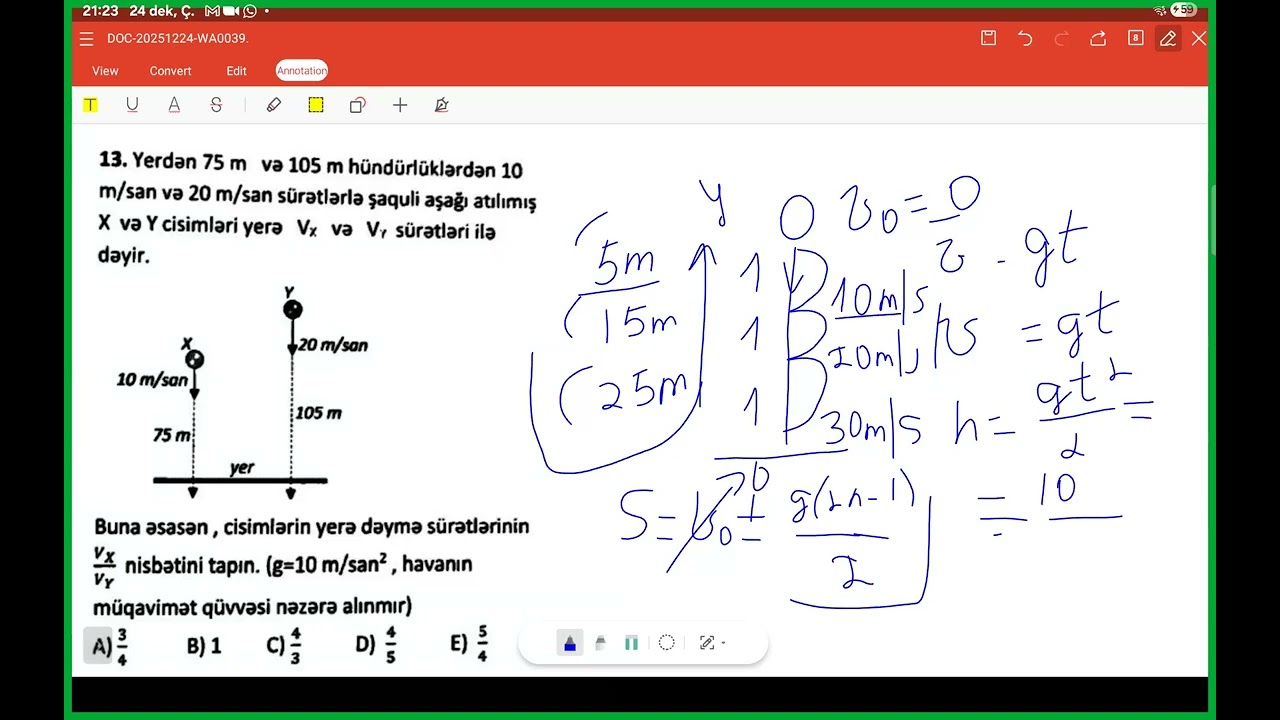 21:23 24 dek, Ç. 59
DOC-20251224-WA0039.
8
View Convert Edit Annotation
T U A S
13. Yerdən 75 m və 105 m hündürlüklərdən 10
m/san və 20 m/san sürətlərlə şaquli aşağı atılımış
X və Y cisimləri yerə Vx və VY sürətləri ilə
dəyir.
Y
X
20 m/san
10 m/san
105 m
75 m
yer
Buna əsasən , cisimlərin yerə dəymə sürətlərinin
Vx/VY nisbətini tapın. (g=10 m/san² , havanın
müqavimət qüvvəsi nəzərə alınmır)
A) 3/4 B) 1 C) 4/3 D) 4/5 E) 5/4
y 0 v0 = 0
5m 1 10m/s
v - gt
15m 1 20m/s
= gt
25m 1 30m/s
h = gt²/2 =
0
S = v0 ± g(2n-1)/2
= 10